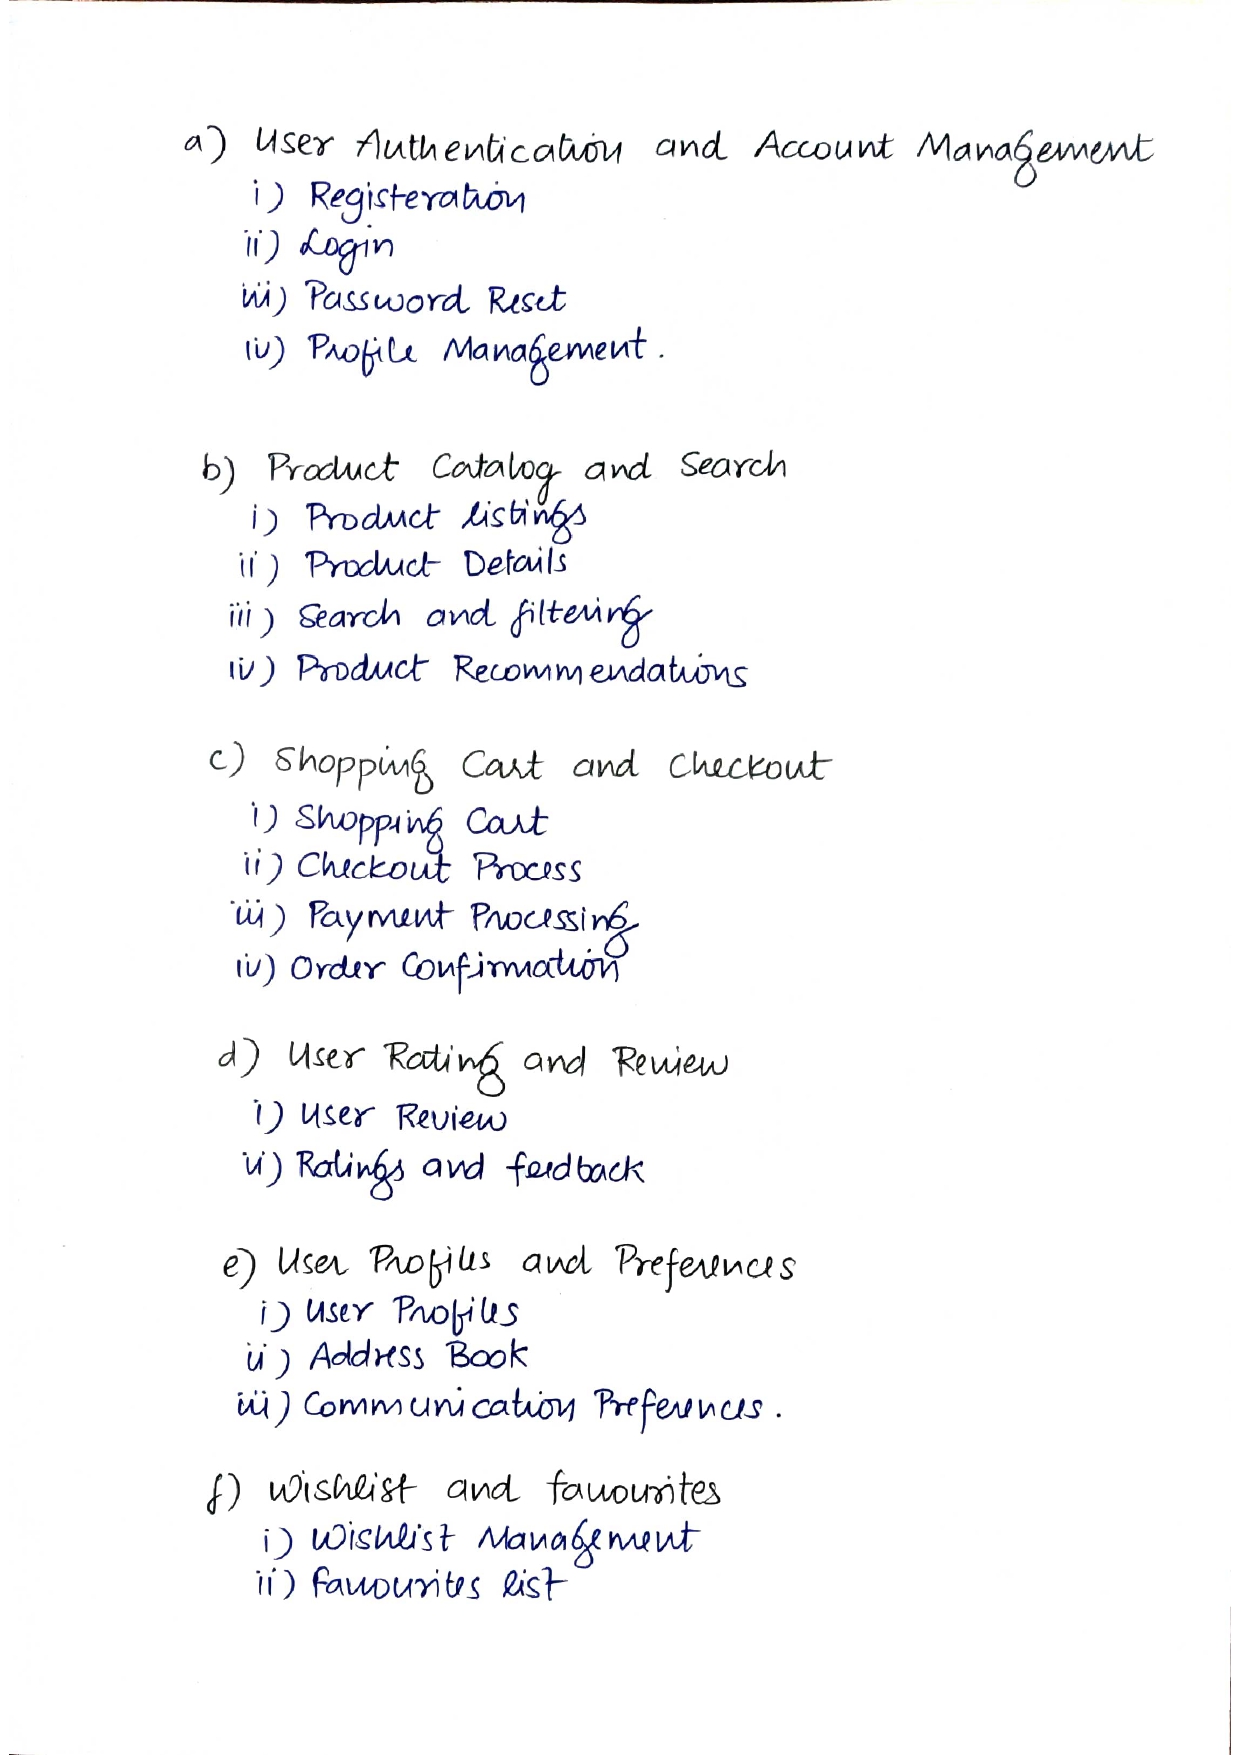 a) User Authentication and Account Management
i) Registeration
ii) Login
iii) Password Reset
iv) Profile Management.
b) Product Catalog and Search
i) Product listings
ii) Product Details
iii) Search and filtering
iv) Product Recommendations
c) Shopping Cart and Checkout
i) Shopping Cart
ii) Checkout Process
iii) Payment Processing
iv) Order Confirmation
d) User Rating and Review
i) User Review
ii) Ratings and feedback
e) User Profiles and Preferences
i) User Profiles
ii) Address Book
iii) Communication Preferences.
f) Wishlist and favourites
i) Wishlist Management
ii) favourites list